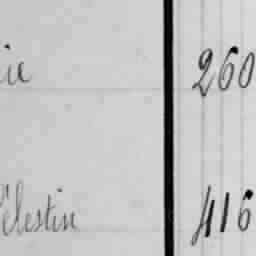 260
Célestin 416